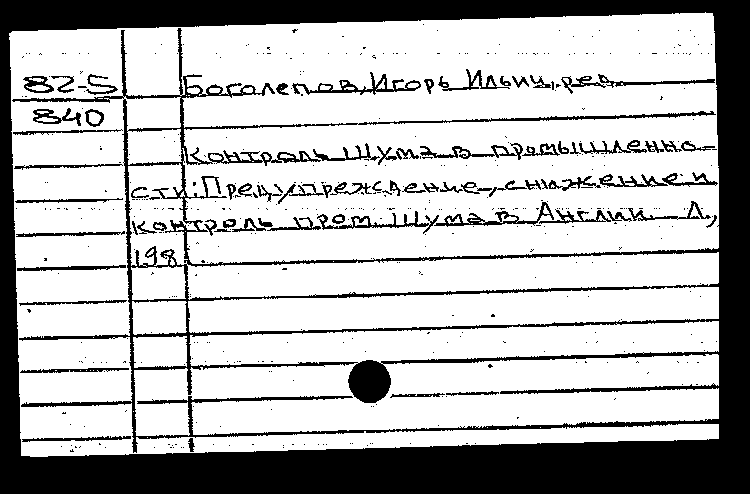 82-5 Боголепов, Игорь Ильич, ред.
840
Контроль шума в промышленно-
сти: Предупреждение, снижение и
контроль пром. шума в Англии. Л.,
1981.